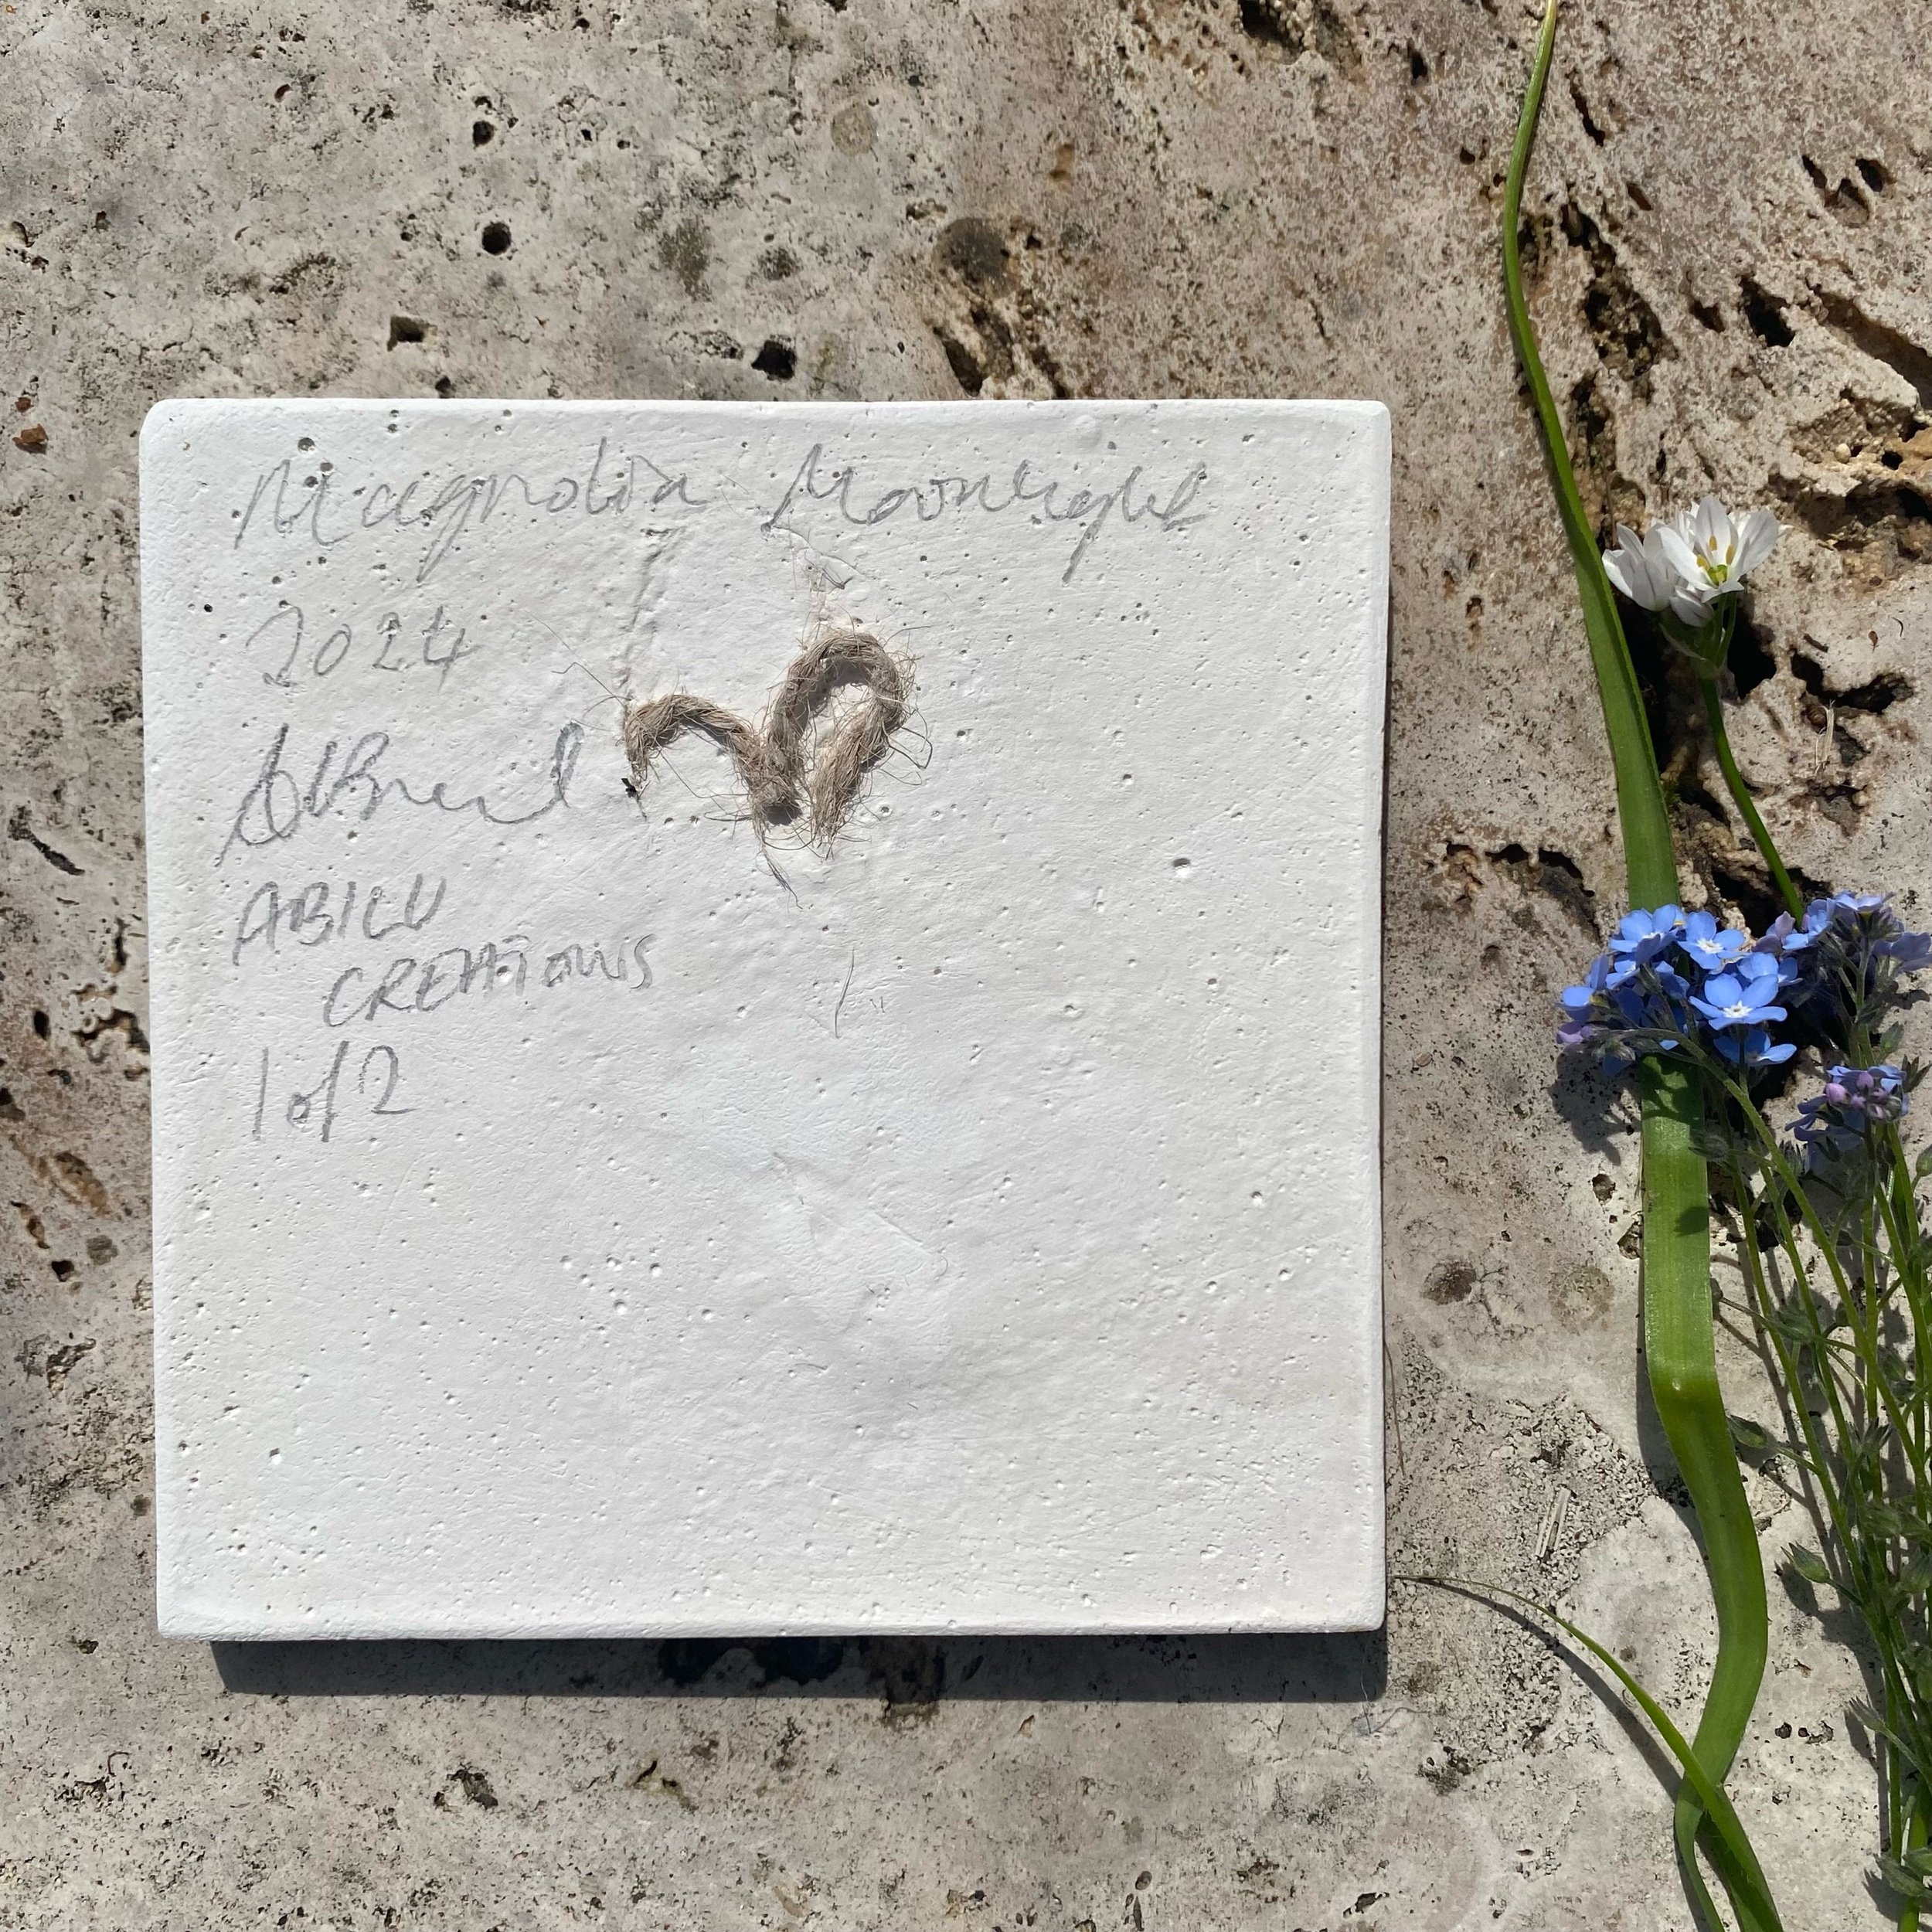 Magnolia Moonlight
2024
ABILU
CREATIONS
1 of 2